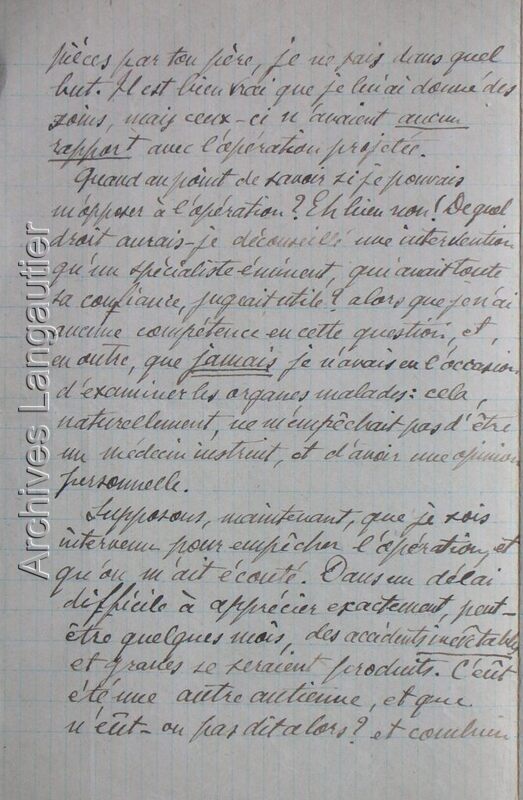 pièces par ton père, je ne sais dans quel
but. Il est bien vrai que je lui ai donné des
soins, mais ceux-ci n'avaient aucun
rapport avec l'opération projetée.
Quand au point de savoir si je pouvais
m'opposer à l'opération? Eh bien non! De quel
droit aurais-je déconseillé une intervention
qu'un spécialiste éminent, qui avait toute
sa confiance, jugeait utile? alors que je n'ai
aucune compétence en cette question, et,
en outre, que jamais je n'avais eu l'occasion
d'examiner les organes malades: cela,
naturellement, ne m'empêchait pas d'être
un médecin instruit, et d'avoir une opinion
personnelle.
Supposons, maintenant, que je sois
intervenu pour empêcher l'opération, et
qu'on m'ait écouté. Dans un délai
difficile à apprécier exactement, peut-
être quelques mois, des accidents inévitables
et graves se seraient produits. C'eût
été une autre antienne, et que
n'eût-on pas dit alors? et combien
Archives Langautier